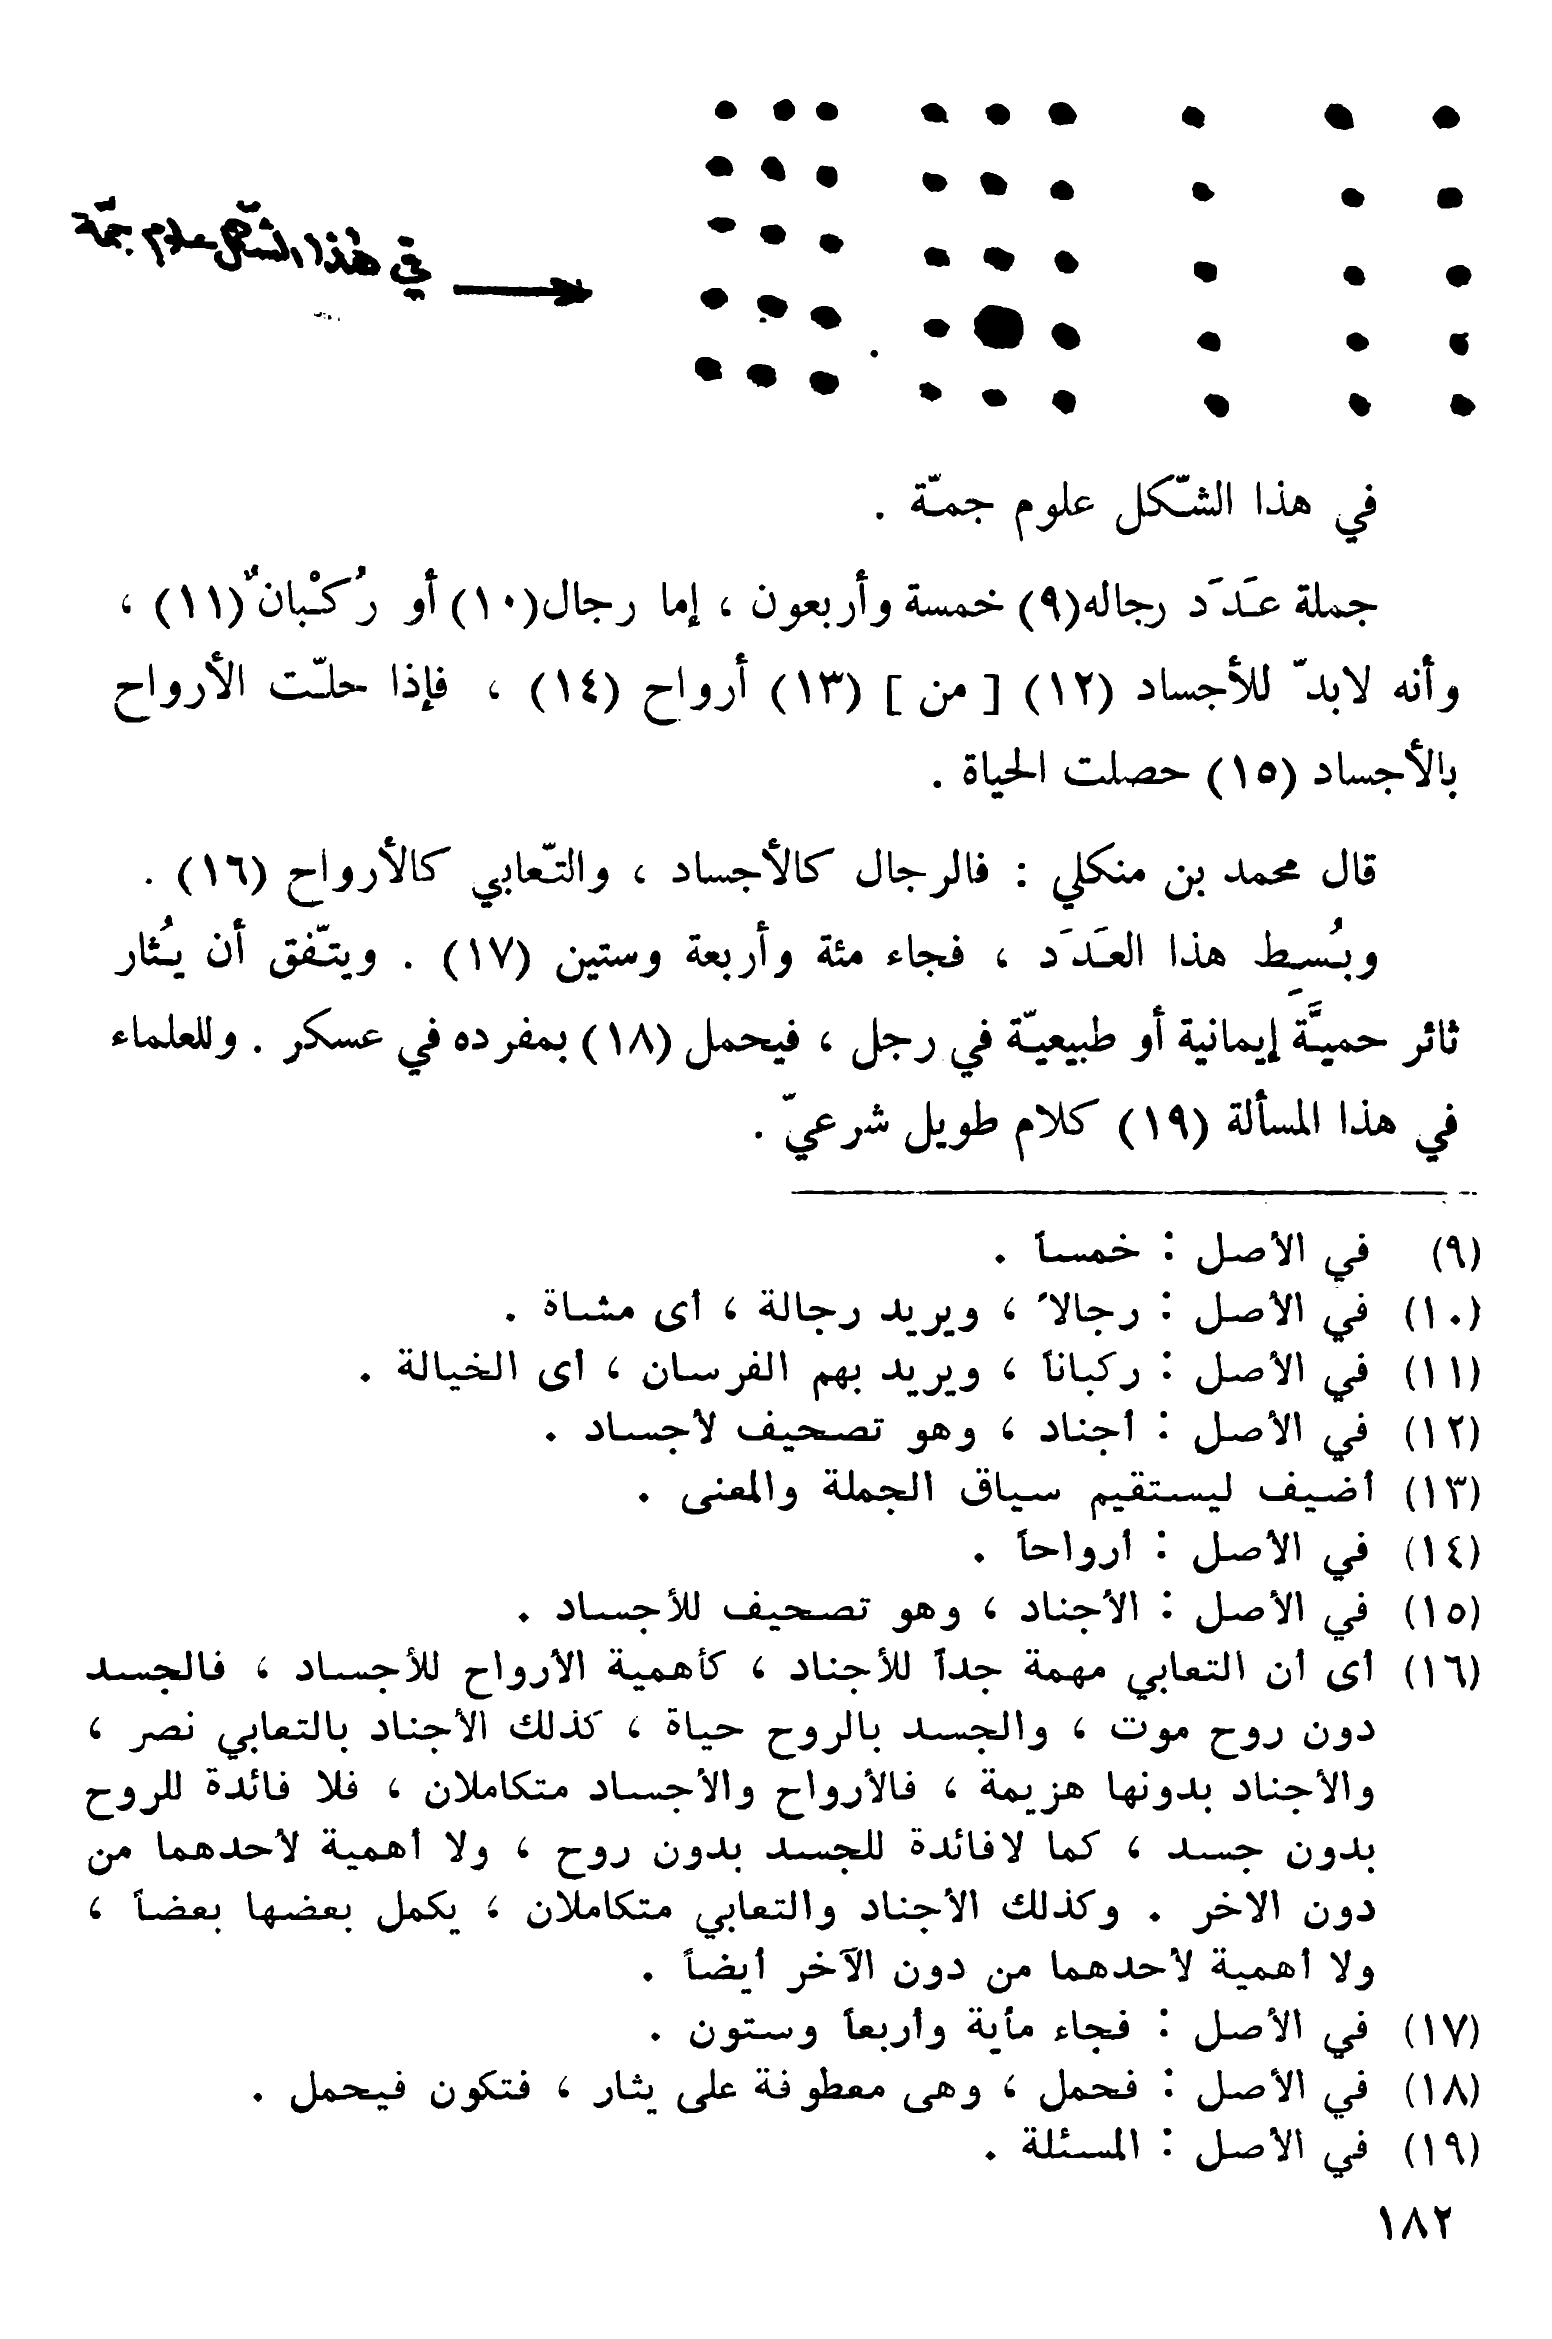 في هذا الشكل علوم جمّة
في هذا الشّكل علوم جمّة .
جملة عَدَد رجاله(٩) خمسة وأربعون ، إما رجال(١٠) أو رُكْبانٌ(١١) ،
وأنه لابدّ للأجساد (١٢) [ من ] (١٣) أرواح (١٤) ، فإذا حلّت الأرواح
بالأجساد (١٥) حصلت الحياة .
قال محمد بن منكلي : فالرجال كالأجساد ، والتّعابي كالأرواح (١٦) .
وبُسِط هذا العَدَد ، فجاء مئة وأربعة وستين (١٧) . ويتّفق أن يُثار
ثائر حميَّة إيمانية أو طبيعيّة في رجل ، فيحمل (١٨) بمفرده في عسكر . وللعلماء
في هذا المسألة (١٩) كلام طويل شرعيّ .
(٩) في الأصل : خمساً .
(١٠) في الأصل : رجالاً ، ويريد رجالة ، أى مشاة .
(١١) في الأصل : ركباناً ، ويريد بهم الفرسان ، أى الخيالة .
(١٢) في الأصل : أجناد ، وهو تصحيف لأجساد .
(١٣) أضيف ليستقيم سياق الجملة والمعنى .
(١٤) في الأصل : أرواحاً .
(١٥) في الأصل : الأجناد ، وهو تصحيف للأجساد .
(١٦) أى أن التعابي مهمة جداً للأجناد ، كأهمية الأرواح للأجساد ، فالجسد
دون روح موت ، والجسد بالروح حياة ، كذلك الأجناد بالتعابي نصر ،
والأجناد بدونها هزيمة ، فالأرواح والأجساد متكاملان ، فلا فائدة للروح
بدون جسد ، كما لافائدة للجسد بدون روح ، ولا أهمية لأحدهما من
دون الاخر . وكذلك الأجناد والتعابي متكاملان ، يكمل بعضها بعضاً ،
ولا أهمية لأحدهما من دون الآخر أيضاً .
(١٧) في الأصل : فجاء مأية وأربعاً وستون .
(١٨) في الأصل : فحمل ، وهى معطوفة على يثار ، فتكون فيحمل .
(١٩) في الأصل : المسئلة .
١٨٢